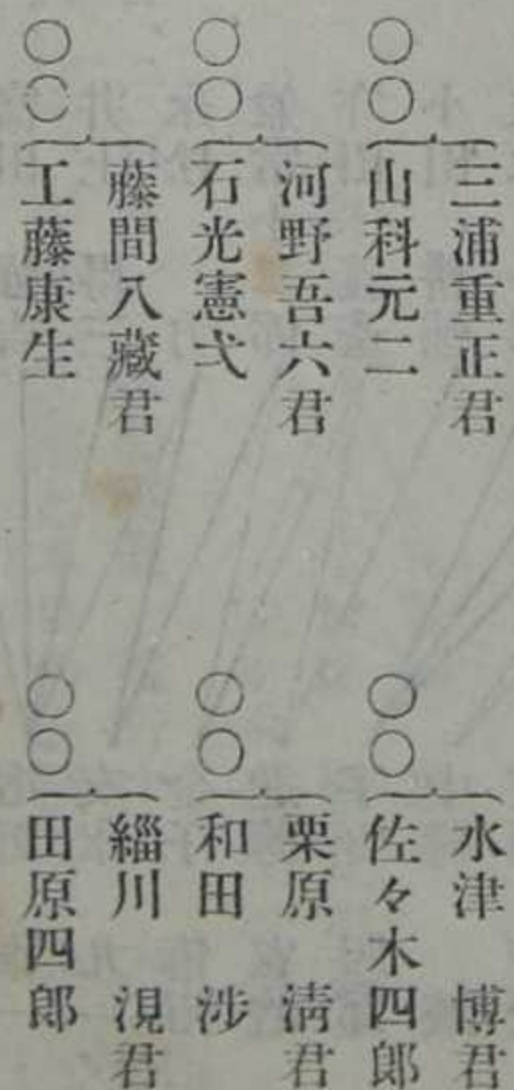 三浦重正君
山科元二
○○
河野吾六君
石光憲弍
○○
藤間八藏君
工藤康生
○○
水津 博君
佐々木四郎
○○
栗原 淸君
和田 渉
○○
緇川 滉君
田原四郎
○○